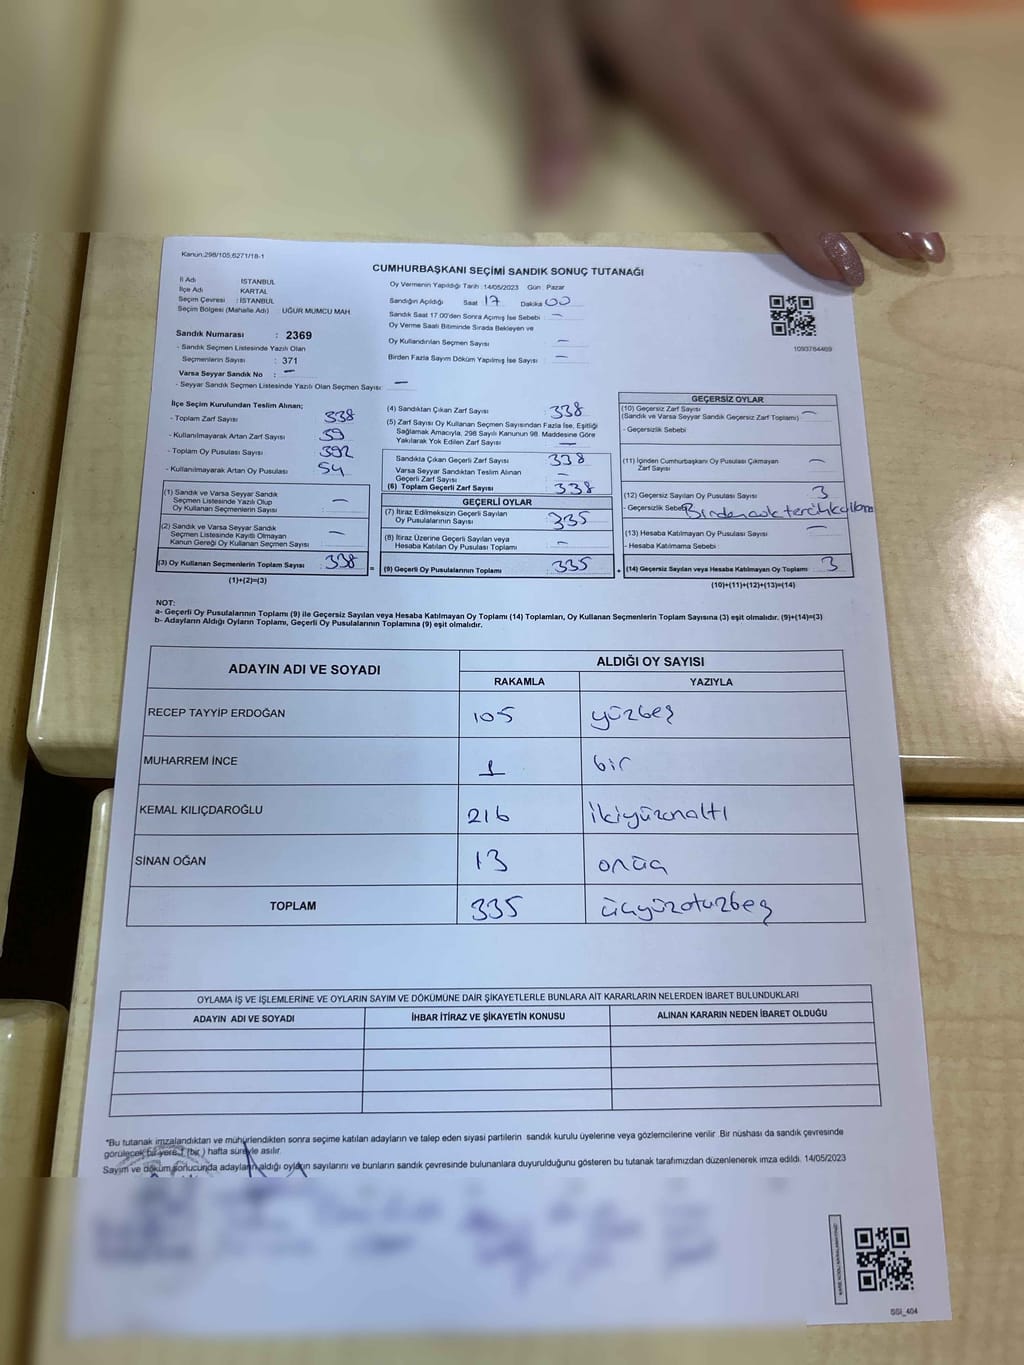 Kanun.298/105,6271/18-1
CUMHURBAŞKANI SEÇİMİ SANDIK SONUÇ TUTANAĞI
İl Adı İSTANBUL
İlçe Adı KARTAL
Seçim Çevresi : İSTANBUL
Seçim Bölgesi (Mahalle Adı) UĞUR MUMCU MAH
Sandık Numarası : 2369
- Sandık Seçmen Listesinde Yazılı Olan
Seçmenlerin Sayısı : 371
Varsa Seyyar Sandık No : —
- Seyyar Sandık Seçmen Listesinde Yazılı Olan Seçmen Sayısı —
Oy Vermenin Yapıldığı Tarih : 14/05/2023 Gün : Pazar
Sandığın Açıldığı Saat 17 Dakika 00
Sandık Saat 17.00'den Sonra Açımış İse Sebebi : —
Oy Verme Saati Bitiminde Sırada Bekleyen ve
Oy Kullandırılan Seçmen Sayısı —
Birden Fazla Sayım Döküm Yapılmış İse Sayısı : —
1093784469
İlçe Seçim Kurulundan Teslim Alınan;
- Toplam Zarf Sayısı 338
- Kullanılmayarak Artan Zarf Sayısı : 39
- Toplam Oy Pusulası Sayısı : 392
- Kullanılmayarak Artan Oy Pusulası 54
(1) Sandık ve Varsa Seyyar Sandık
Seçmen Listesinde Yazılı Olup
Oy Kullanan Seçmenlerin Sayısı : —
(2) Sandık ve Varsa Seyyar Sandık
Seçmen Listesinde Kayıtlı Olmayan
Kanun Gereği Oy Kullanan Seçmen Sayısı : —
(3) Oy Kullanan Seçmenlerin Toplam Sayısı : 338 =
(1)+(2)=(3)
(4) Sandıktan Çıkan Zarf Sayısı : 338
(5) Zarf Sayısı Oy Kullanan Seçmen Sayısından Fazla İse, Eşitliği
Sağlamak Amacıyla, 298 Sayılı Kanunun 98. Maddesine Göre
Yakılarak Yok Edilen Zarf Sayısı : —
Sandıkta Çıkan Geçerli Zarf Sayısı : 338
Varsa Seyyar Sandıktan Teslim Alınan
Geçerli Zarf Sayısı : —
(6) Toplam Geçerli Zarf Sayısı : 338
GEÇERLİ OYLAR
(7) İtiraz Edilmeksizin Geçerli Sayılan
Oy Pusulalarının Sayısı : 335
(8) İtiraz Üzerine Geçerli Sayılan veya
Hesaba Katılan Oy Pusulası Toplamı : —
(9) Geçerli Oy Pusulalarının Toplamı : 335 +
GEÇERSİZ OYLAR
(10) Geçersiz Zarf Sayısı
(Sandık ve Varsa Seyyar Sandık Geçersiz Zarf Toplamı) —
- Geçersizlik Sebebi
(11) İçinden Cumhurbaşkanı Oy Pusulası Çıkmayan
Zarf Sayısı : —
(12) Geçersiz Sayılan Oy Pusulası Sayısı : 3
- Geçersizlik Sebebi Birden çok tercih
(13) Hesaba Katılmayan Oy Pusulası Sayısı : —
- Hesaba Katılmama Sebebi :
(14) Geçersiz Sayılan veya Hesaba Katılmayan Oy Toplamı : 3
(10)+(11)+(12)+(13)=(14)
NOT:
a- Geçerli Oy Pusulalarının Toplamı (9) ile Geçersiz Sayılan veya Hesaba Katılmayan Oy Toplamı (14) Toplamları, Oy Kullanan Seçmenlerin Toplam Sayısına (3) eşit olmalıdır. (9)+(14)=(3)
b- Adayların Aldığı Oyların Toplamı, Geçerli Oy Pusulalarının Toplamına (9) eşit olmalıdır.
ADAYIN ADI VE SOYADI ALDIĞI OY SAYISI
RAKAMLA YAZIYLA
RECEP TAYYİP ERDOĞAN 105 yüzbeş
MUHARREM İNCE 1 bir
KEMAL KILIÇDAROĞLU 216 ikiyüzonaltı
SİNAN OĞAN 13 onüç
TOPLAM 335 üçyüzotuzbeş
OYLAMA İŞ VE İŞLEMLERİNE VE OYLARIN SAYIM VE DÖKÜMÜNE DAİR ŞİKAYETLERLE BUNLARA AİT KARARLARIN NELERDEN İBARET BULUNDUKLARI
ADAYIN ADI VE SOYADI İHBAR İTİRAZ VE ŞİKAYETİN KONUSU ALINAN KARARIN NEDEN İBARET OLDUĞU
"Bu tutanak imzalandıktan ve mühürlendikten sonra seçime katılan adayların ve talep eden siyasi partilerin sandık kurulu üyelerine veya gözlemcilerine verilir. Bir nüshası da sandık çevresinde
görülecek bir yere 1 (bir ) hafta süreyle asılır.
Sayım ve döküm sonucunda adayların aldığı oyların sayılarını ve bunların sandık çevresinde bulunanlara duyurulduğunu gösteren bu tutanak tarafımızdan düzenlenerek imza edildi. 14/05/2023
SSI_404